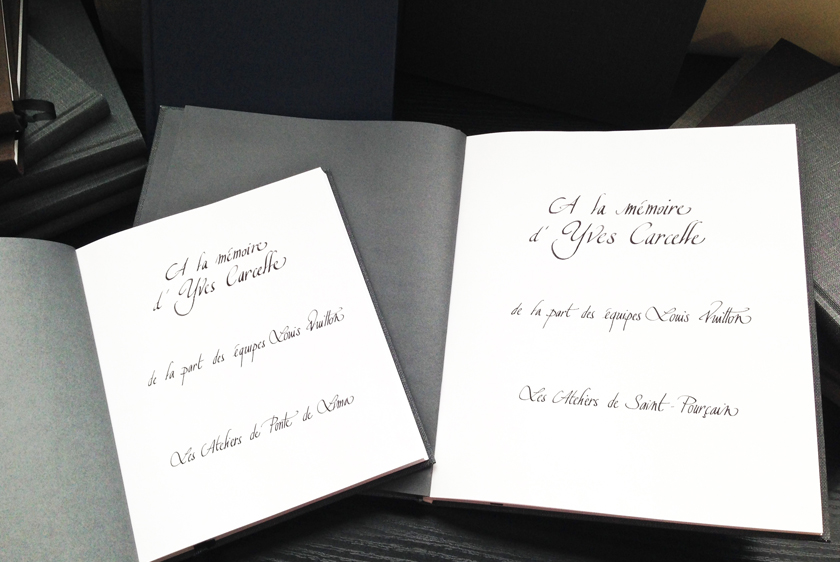 A la mémoire
d' Yves Carcelle
de la part des équipes Louis Vuitton
Les Ateliers de Ponte de Lima
A la mémoire
d' Yves Carcelle
de la part des équipes Louis Vuitton
Les Ateliers de Saint-Pourçain